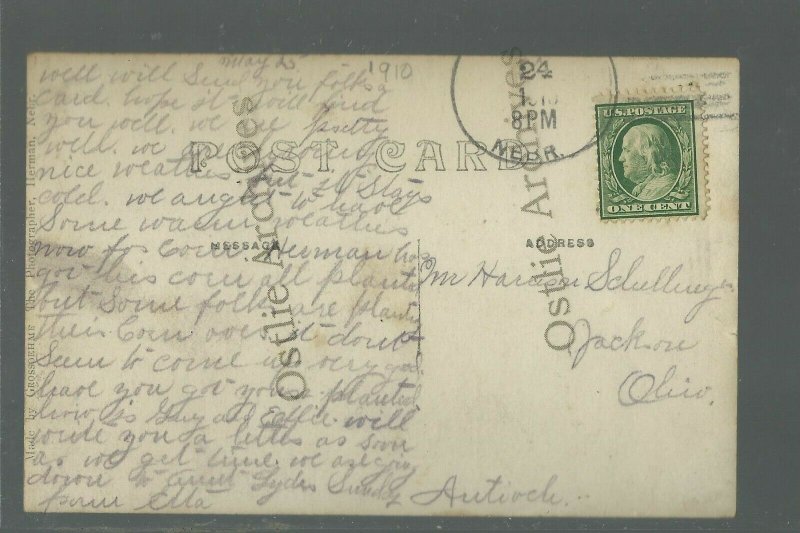 May 25
1910
well will Send you folks a
Card. hope it will find
you well. we are pretty
well. we are
nice weather but it Stays
cold. we aught to have
Some warm weather
now for Corn. Herman has
got his corn all planted
but some folks are planting
their Corn over it dont
Seem to come up very good
have you got yours planted
how is Guy and Effie. will
write you a letter as soon
as we get time. we are going
down to Aunt Lydes Sunday
from Etta
POST CARD
MESSAGE
ADDRESS
24
1910
8 PM
NEBR.
U.S. POSTAGE
ONE CENT
Mr Harrison
Jackson
Ohio.
Antioch.
Made by GROSSOEHME The Photographer, Herman, Nebr.
Ostlie Archives
Ostlie Archives